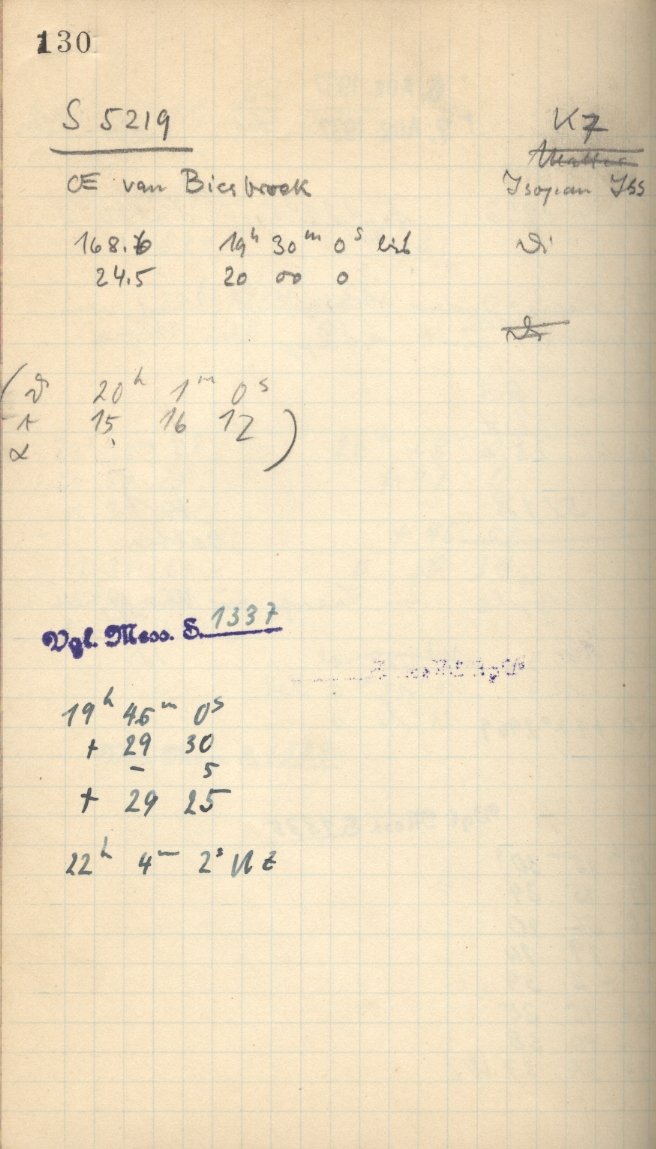 130
S 5219
K7
OE van Biesbroek
Isopan ISS
168.76 19h 30m 0s
24.5 20 00 0
ϑ 20h 1m 0s
15 16 12
α
Vgl. Mess. S. 1337
19h 46m 0s
+ 29 30
- 5
+ 29 25
22h 4m 2s